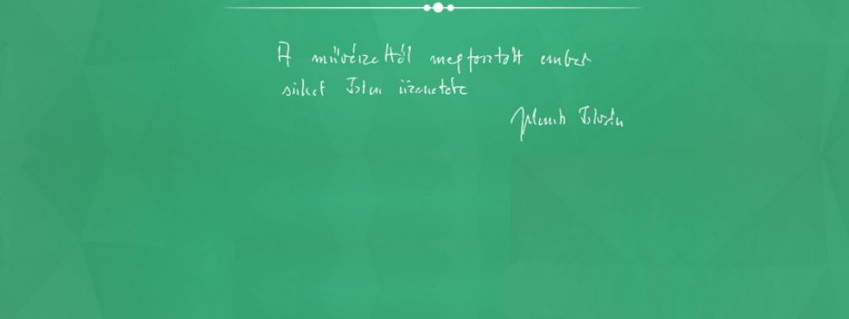 A művészettől megfosztott ember
süket Isten üzenetére
István